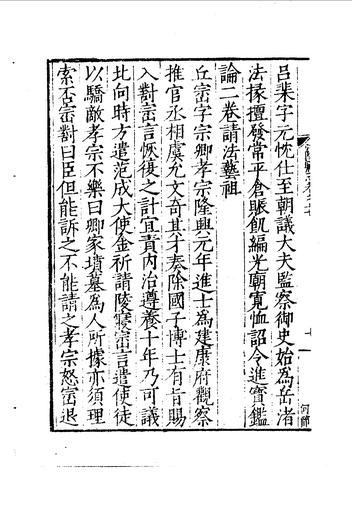 呂棐字元忱仕至朝議大夫監察御史始為岳渚
法掾擅發常平倉賑飢編光廟寬恤詔令進寶鑑
論二卷請法藝祖
丘崈字宗卿孝宗隆興元年進士為建康府觀察
推官丞相虞允文奇其才奏除國子博士有旨賜
入對崈言恢復之計宜責内治遵養十年乃可議
北向時方遣范成大使金祈請陵寢崈言遣使徒
以驕敵孝宗不樂曰卿家墳墓為人所據亦須理
索否崈對曰臣但能訴之不能請之孝宗怒崈退
何鄮